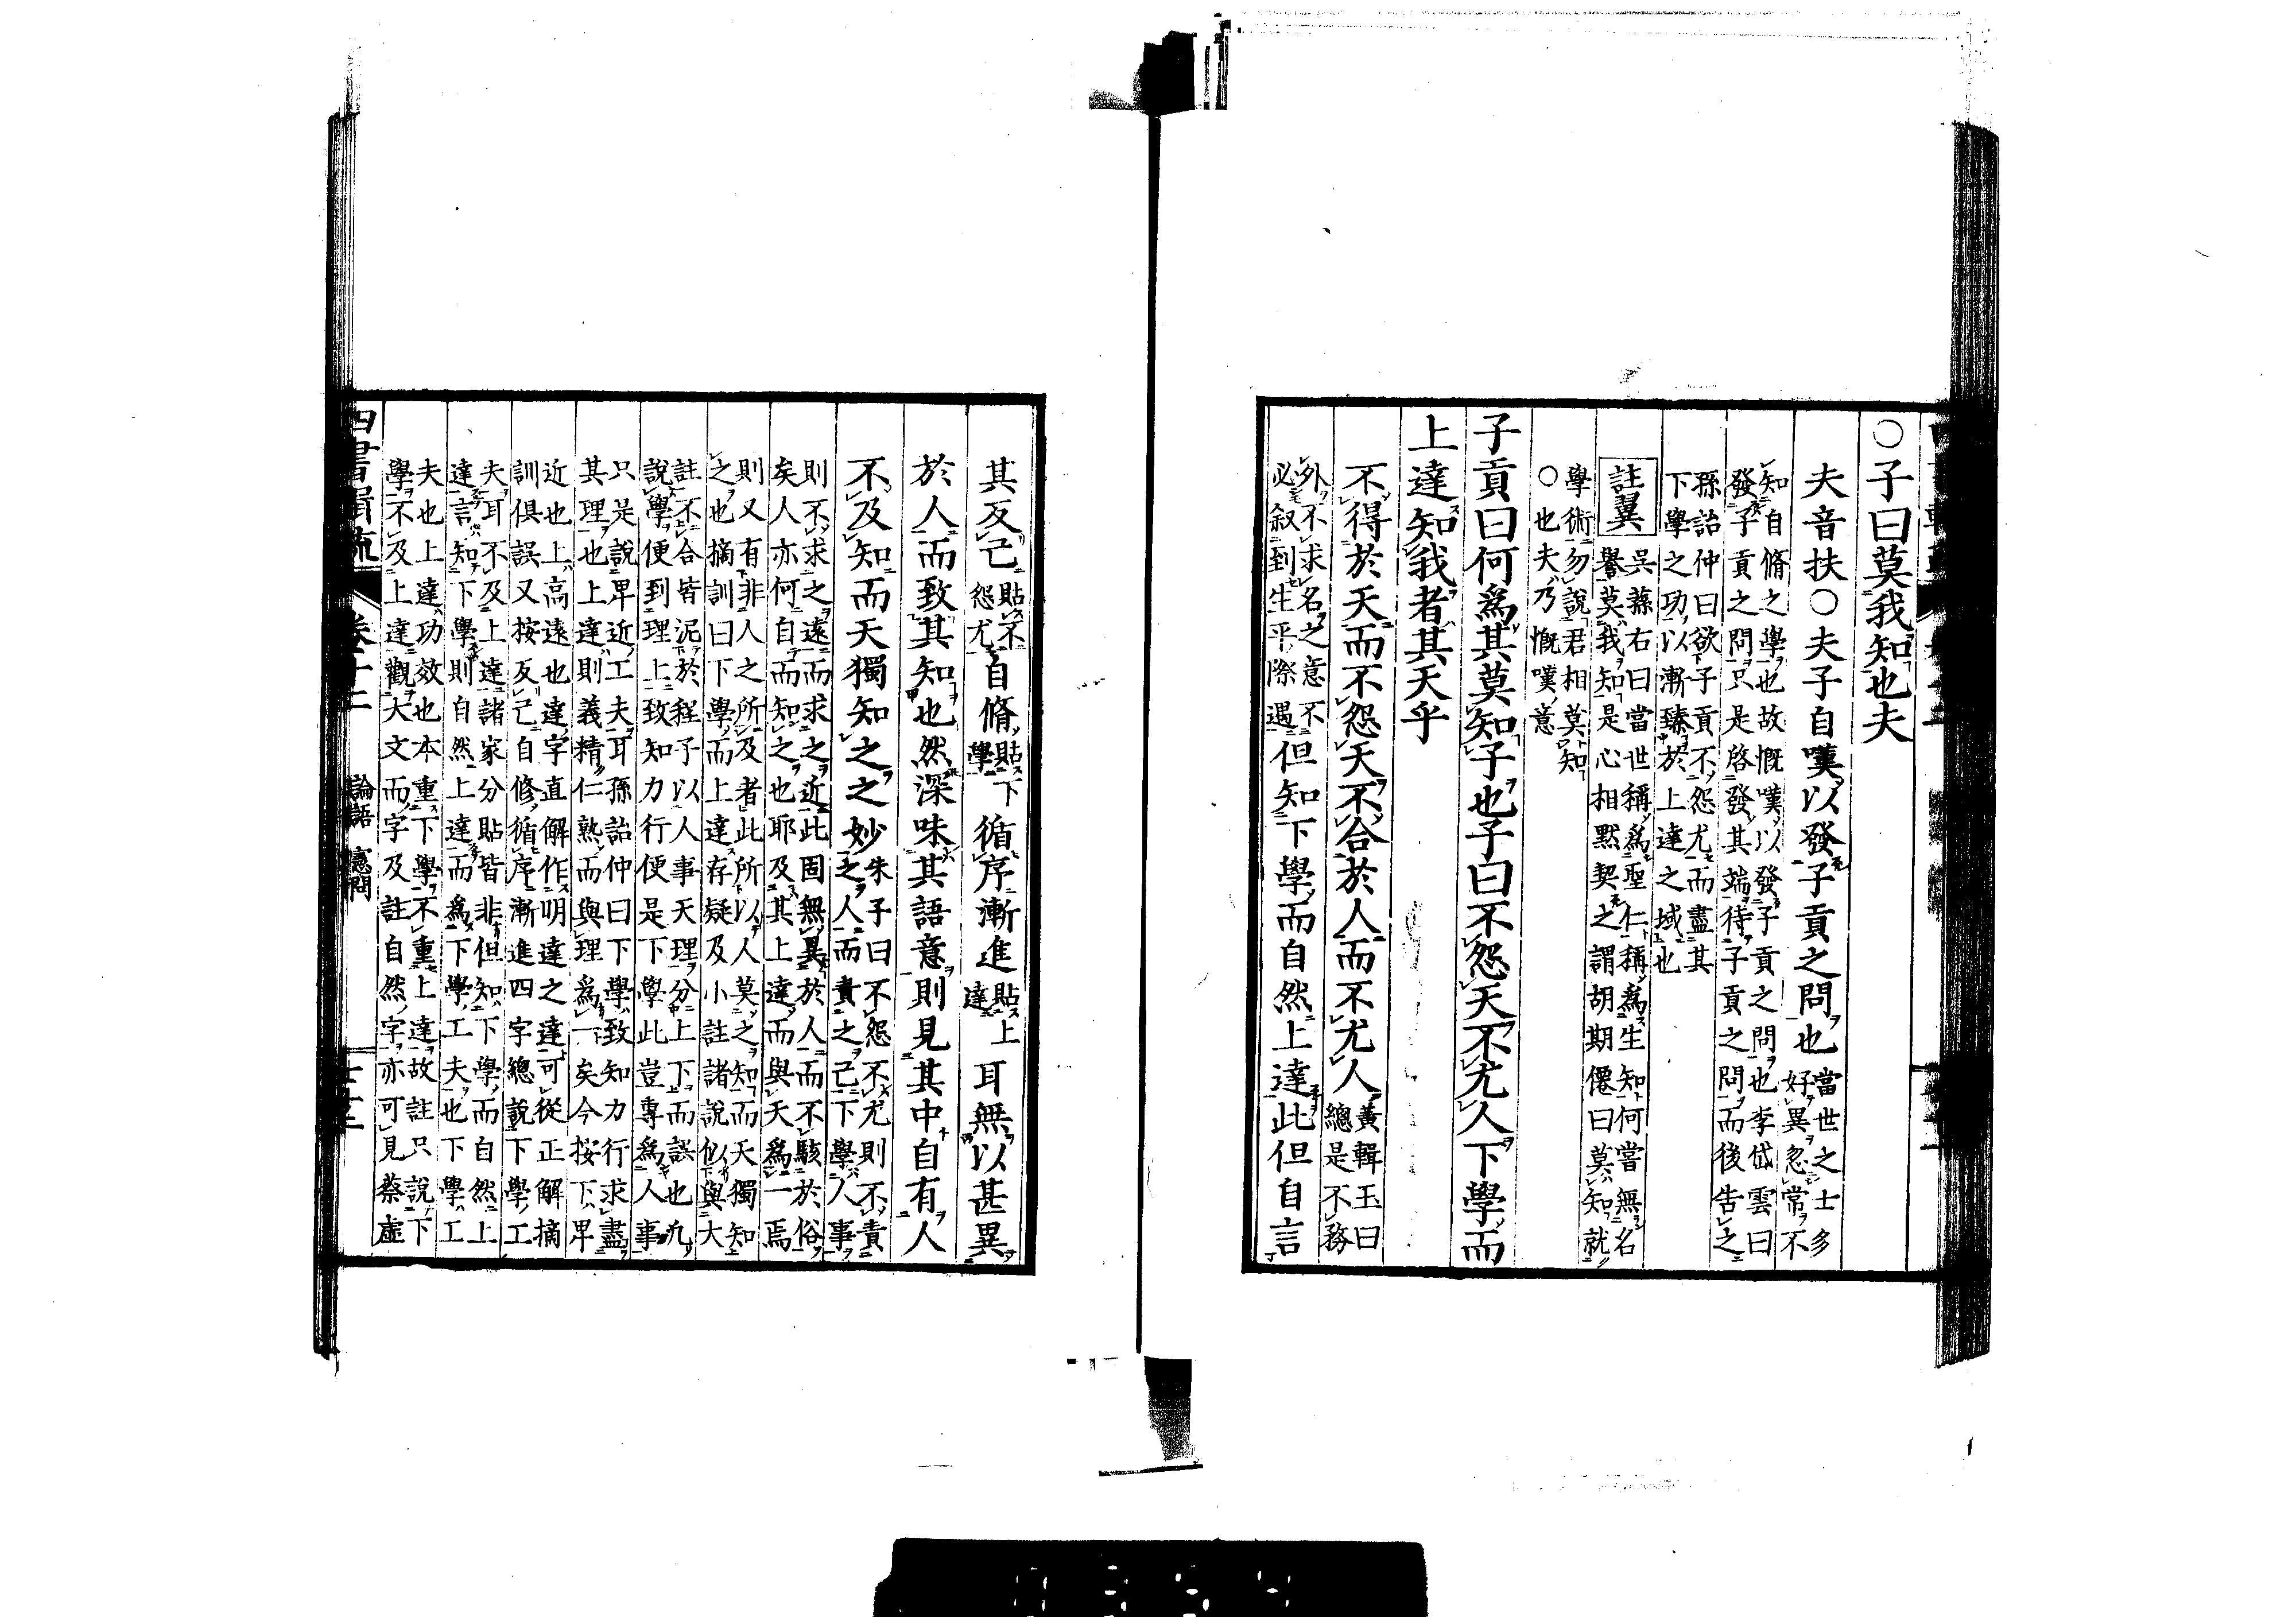 〇子曰莫我知也夫
夫音扶〇夫子自嘆以發子貢之問也
當世之士多
好異忽常不
知自脩之學也故慨嘆以發子貢之問也李岱雲曰
發子貢之問只是啓發其端待子貢之問而後告之
孫詒仲曰欲子貢不怨尤而盡其
下學之功以漸臻於上達之域也
註翼
吳蓀右曰當世稱爲聖仁稱爲生知何嘗無名
譽莫我知是心相默契之謂胡期僊曰莫知就
學術勿說君相莫知
〇也夫乃慨嘆意
子貢曰何爲其莫知子也子曰不怨天不尤人下學而
上達知我者其天乎
不得於天而不怨天不合於人而不尤人
黃輯玉曰
總是不務
外不求名之意不
必叙到生平際遇
但知下學而自然上達此但自言
其反己
貼不
怨尤
自脩
貼下
學
循序漸進
貼上
達
耳無以甚異
於人而致其知也然深味其語意則見其中自有人
不及知而天獨知之之妙
朱子曰不怨不尤則不責
之人而責之己下學人事
則不求之遠而求之近此固無異於人而不駭於俗
矣人亦何自而知之也耶及其上達而與天爲一焉
則又有非人之所及者此所以人莫之知而天獨知
之也摘訓曰下學而上達存疑及小註諸說似與大
註不合皆泥於程子以人事天理分上下而誤也凡
說學便到理上致知力行便是下學此豈專爲人事
只是說卑近工夫耳孫詒仲曰下學致知力行求盡
其理也上達則義精仁熟而與理爲一矣今按下卑
近也上高遠也達字直解作明達之達可從正解摘
訓俱誤又按反己自修循序漸進四字總說下學工
夫耳不及上達諸家分貼皆非但知下學而自然上
達言知下學則自然上達而爲下學工夫也下學工
夫也上達功效也本重下學不重上達故註只說下
學不及上達觀大文而字及註自然字亦可見蔡虛
四書輯疏
卷十二
論語 憲問